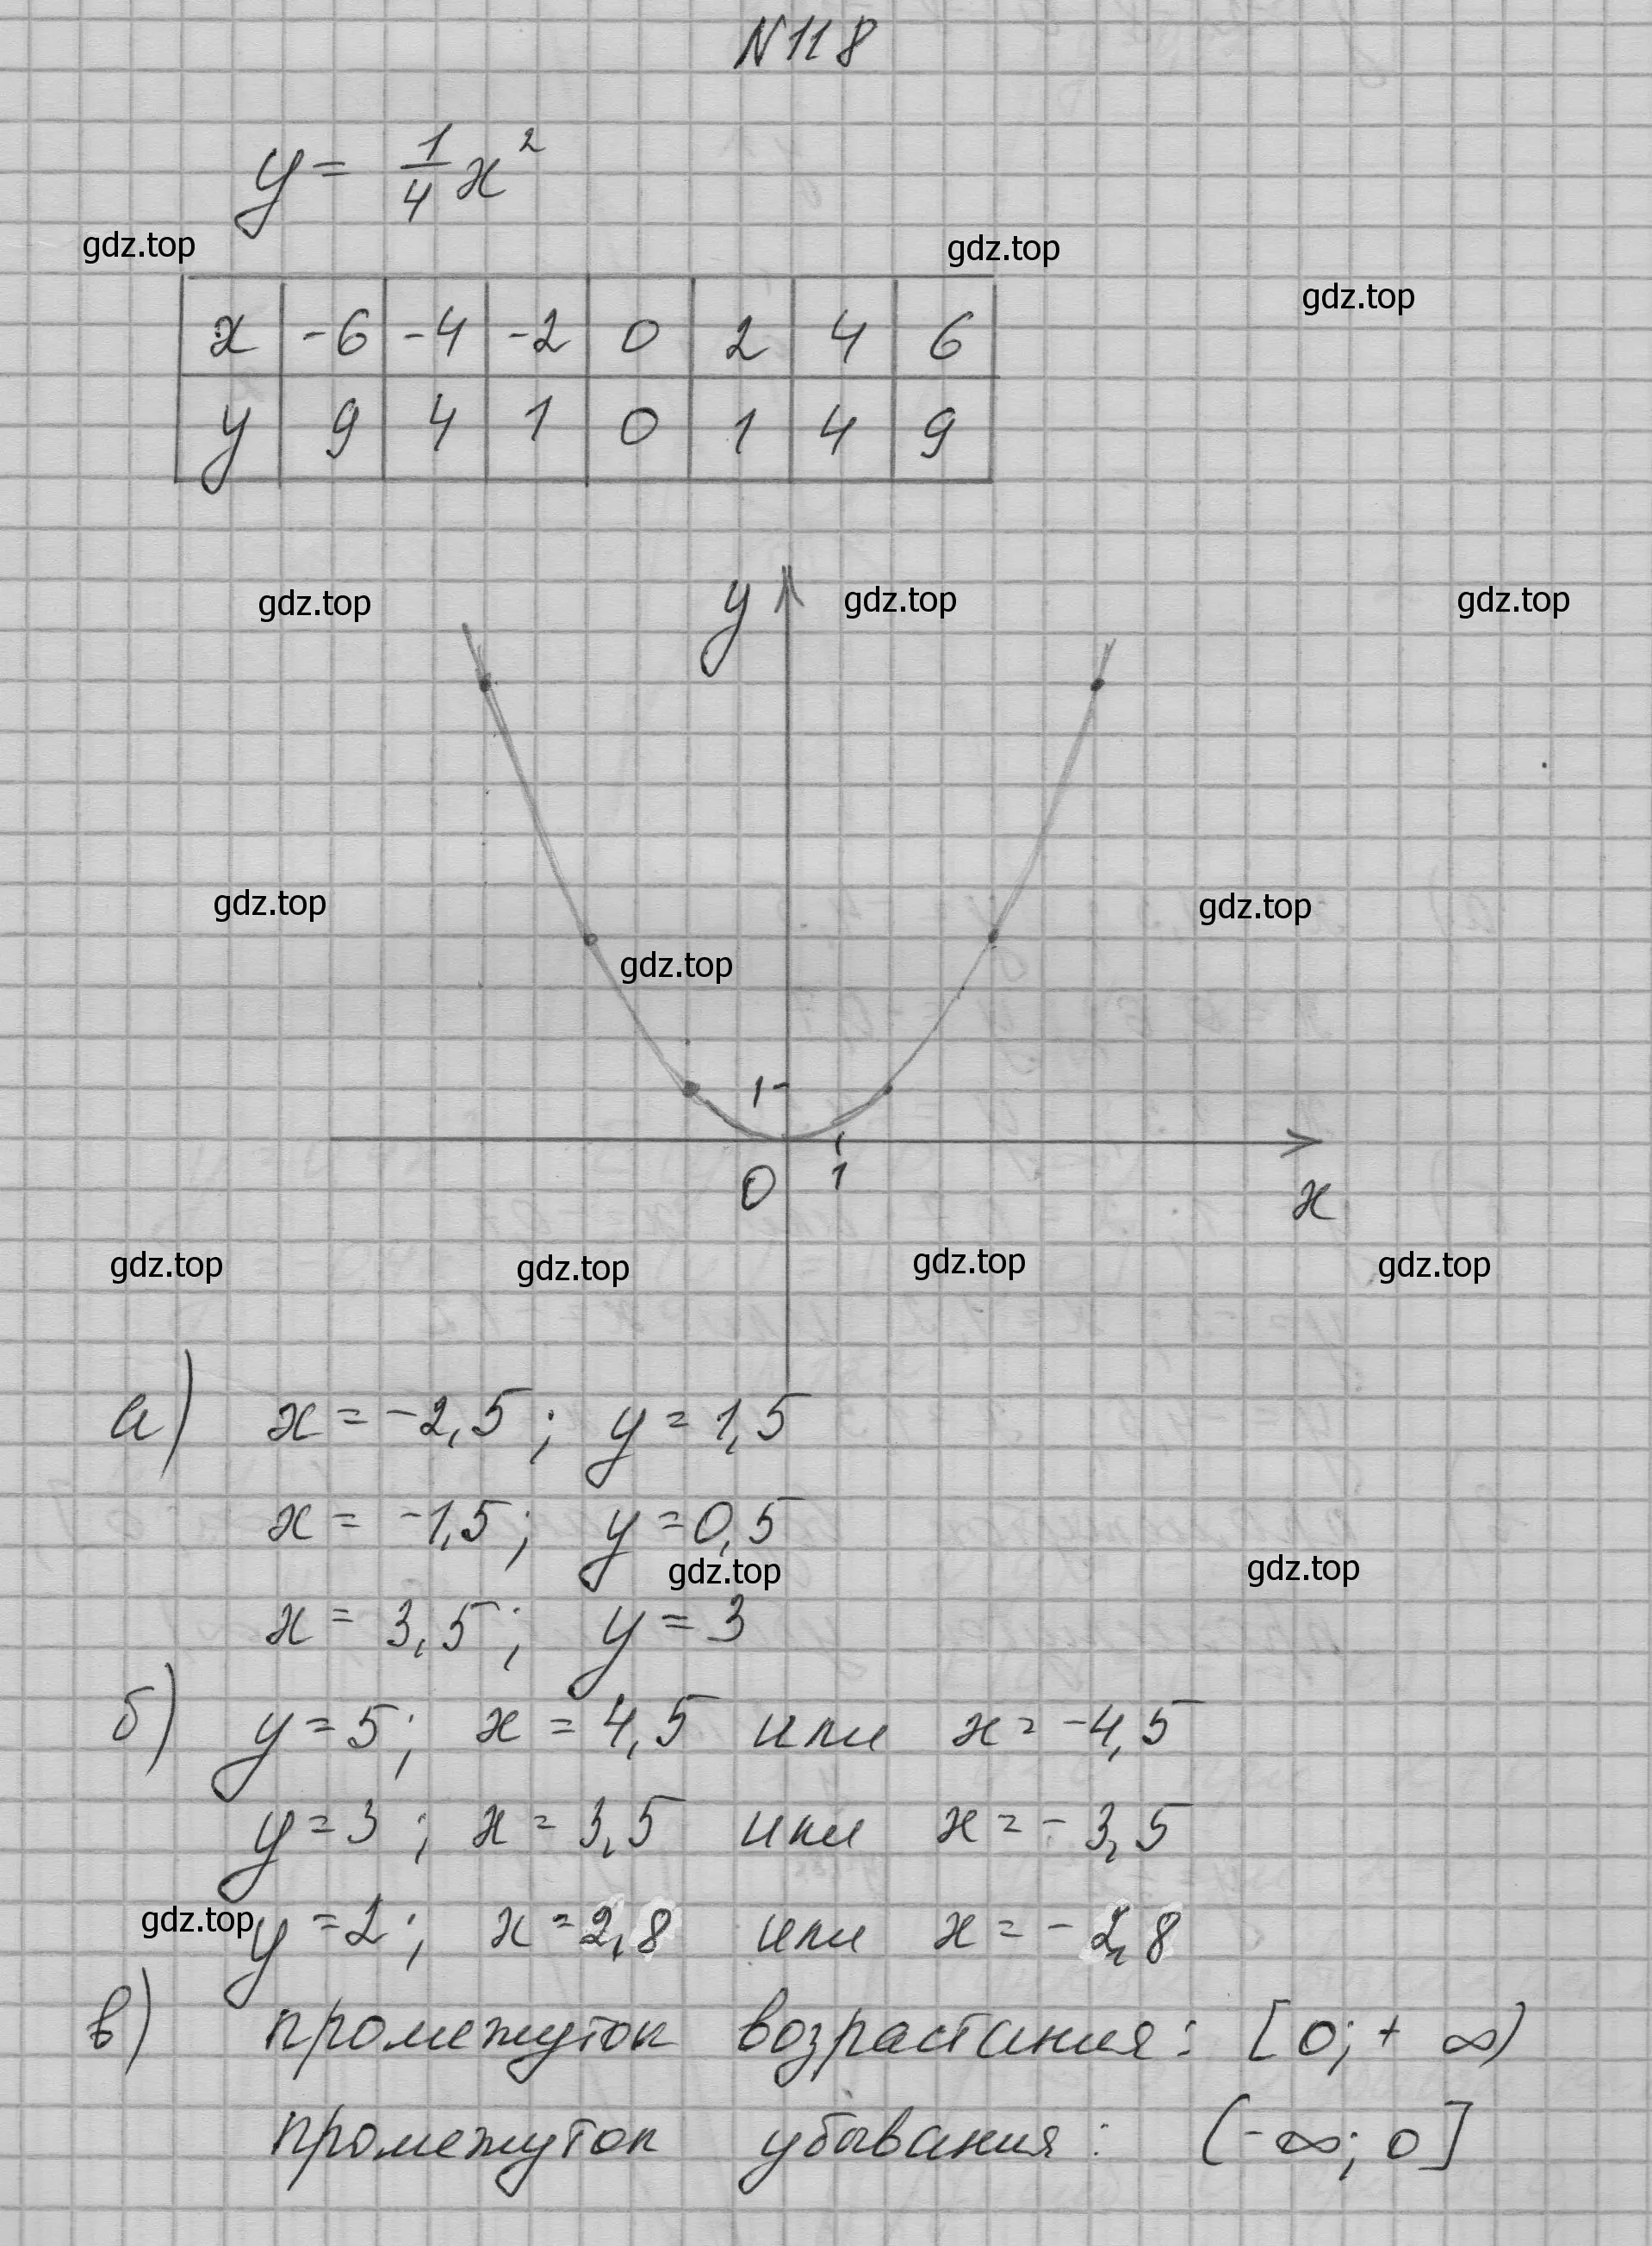 N118
y = 1/4 x²
gdz.top gdz.top
gdz.top
x -6 -4 -2 0 2 4 6
y 9 4 1 0 1 4 9
gdz.top y gdz.top gdz.top
gdz.top gdz.top
gdz.top
1
0 1 x
gdz.top gdz.top gdz.top gdz.top
а) x = -2,5; y = 1,5
x = -1,5; y = 0,5
gdz.top gdz.top
x = 3,5; y = 3
б) y = 5; x = 4,5 или x = -4,5
y = 3; x = 3,5 или x = -3,5
gdz.top y = 2; x = 2,8 или x = -2,8
в) промежуток возрастания: [0; + ∞)
промежуток убывания: (-∞; 0]